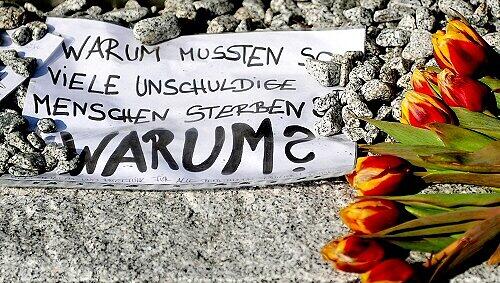 WARUM MUSSTEN SO
VIELE UNSCHULDIGE
MENSCHEN STERBEN?
WARUM?
FÜR ALLE